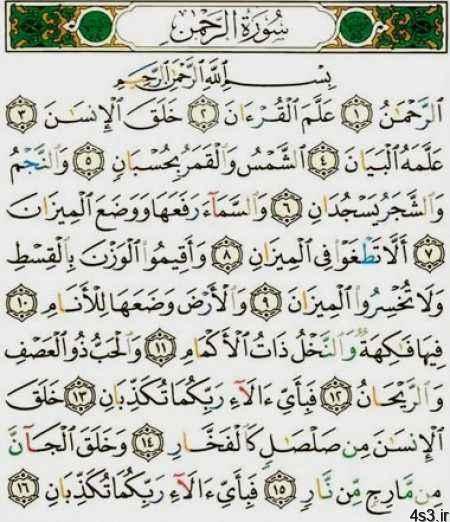 سُورَةُ الرَّحْمٰنِ
بِسْمِ اللَّهِ الرَّحْمَٰنِ الرَّحِيمِ
الرَّحْمَٰنُ ١ عَلَّمَ الْقُرْءَانَ ٢ خَلَقَ الْإِنسَٰنَ ٣
عَلَّمَهُ الْبَيَانَ ٤ الشَّمْسُ وَالْقَمَرُ بِحُسْبَانٍ ٥ وَالنَّجْمُ
وَالشَّجَرُ يَسْجُدَانِ ٦ وَالسَّمَآءَ رَفَعَهَا وَوَضَعَ الْمِيزَانَ
٧ أَلَّا تَطْغَوْا فِي الْمِيزَانِ ٨ وَأَقِيمُوا الْوَزْنَ بِالْقِسْطِ
وَلَا تُخْسِرُوا الْمِيزَانَ ٩ وَالْأَرْضَ وَضَعَهَا لِلْأَنَامِ ١٠
فِيهَا فَٰكِهَةٌ وَالنَّخْلُ ذَاتُ الْأَكْمَامِ ١١ وَالْحَبُّ ذُو الْعَصْفِ
وَالرَّيْحَانُ ١٢ فَبِأَيِّ ءَالَآءِ رَبِّكُمَا تُكَذِّبَانِ ١٣ خَلَقَ
الْإِنسَٰنَ مِن صَلْصَٰلٍ كَالْفَخَّارِ ١٤ وَخَلَقَ الْجَآنَّ
مِن مَّارِجٍ مِّن نَّارٍ ١٥ فَبِأَيِّ ءَالَآءِ رَبِّكُمَا تُكَذِّبَانِ ١٦
4s3.ir